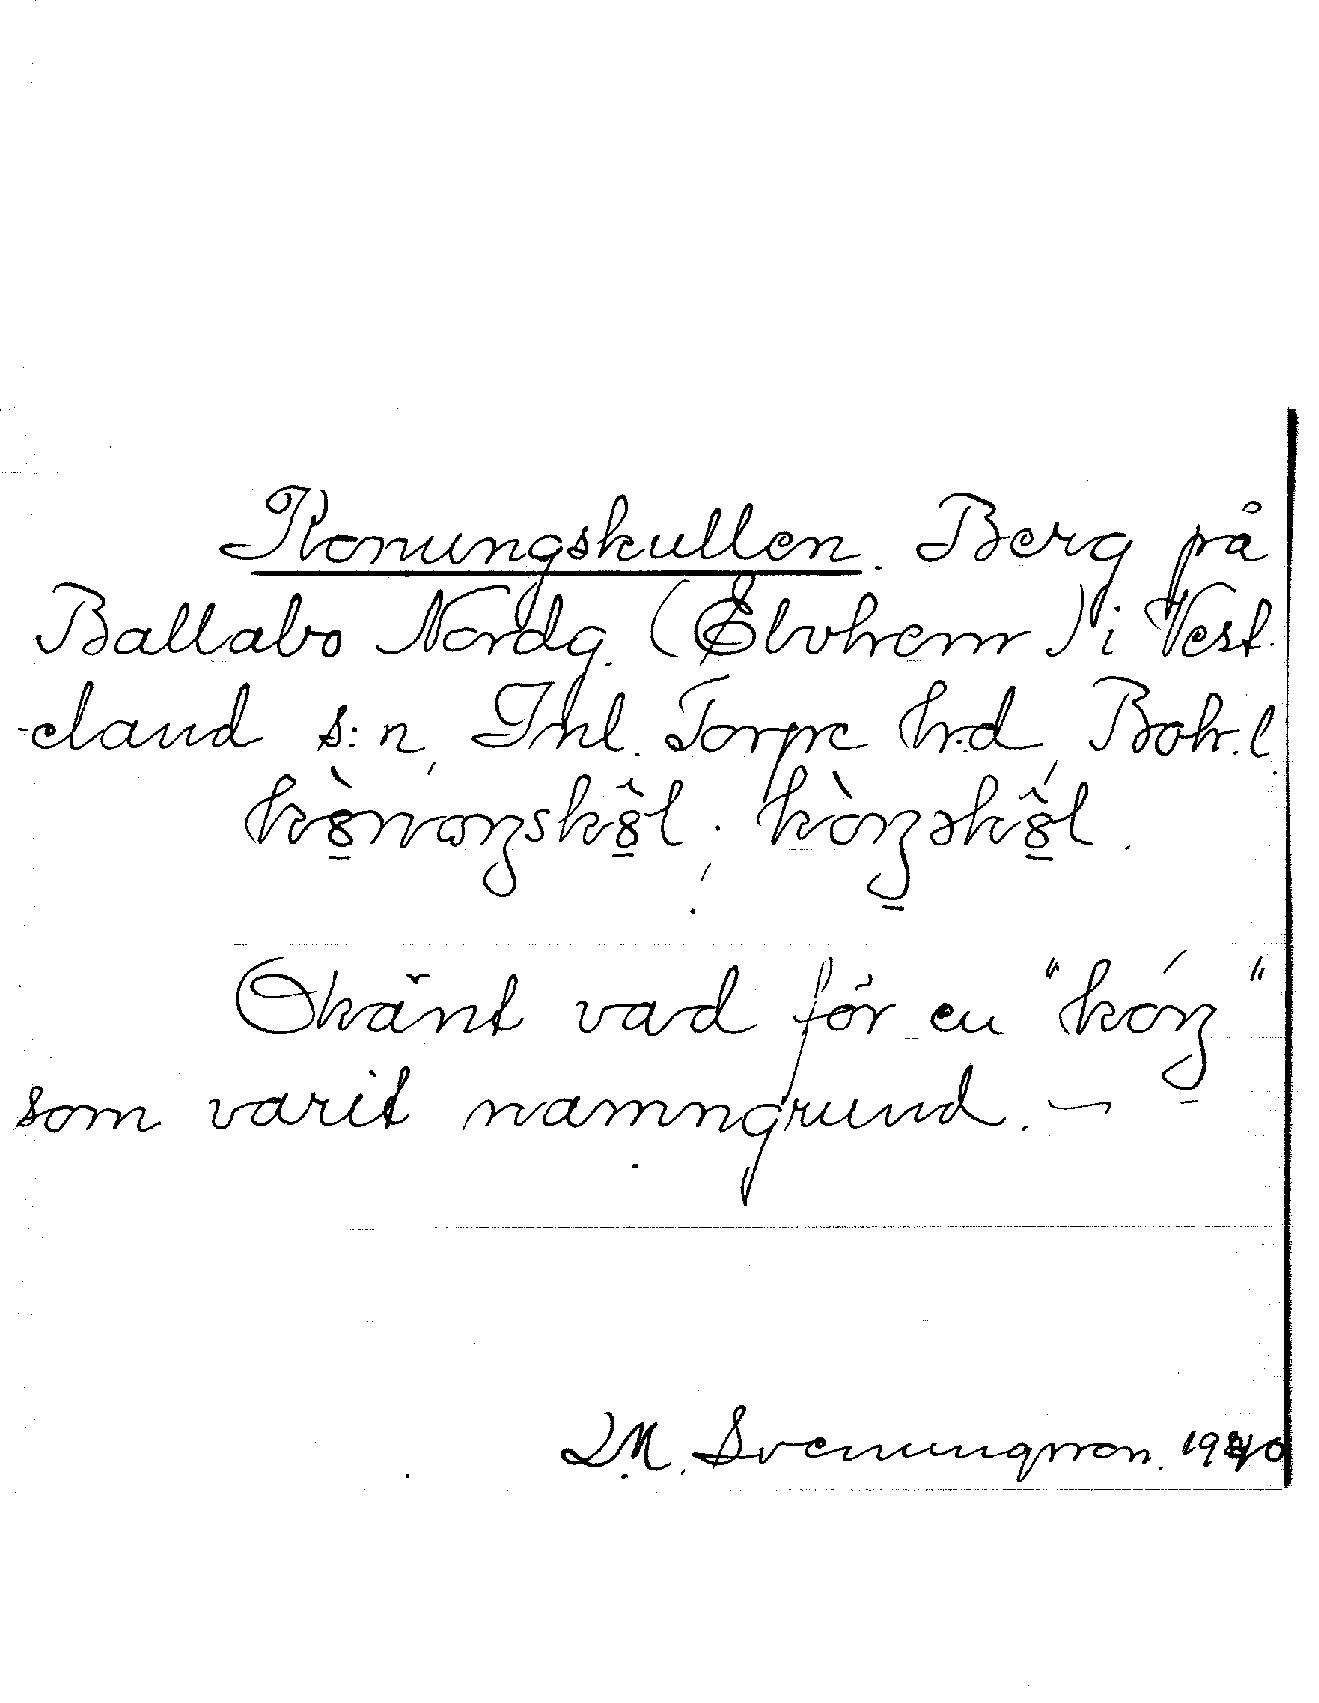 Konungskullen. Berg på
Ballabo Nordg. (Elvhem) i Vest-
-erland s:n, Inl. Torpe hrd, Boh.l.
Okänt vad för en "kóŋ"
som varit namngrund. —
L.M. Svenungsson. 1940